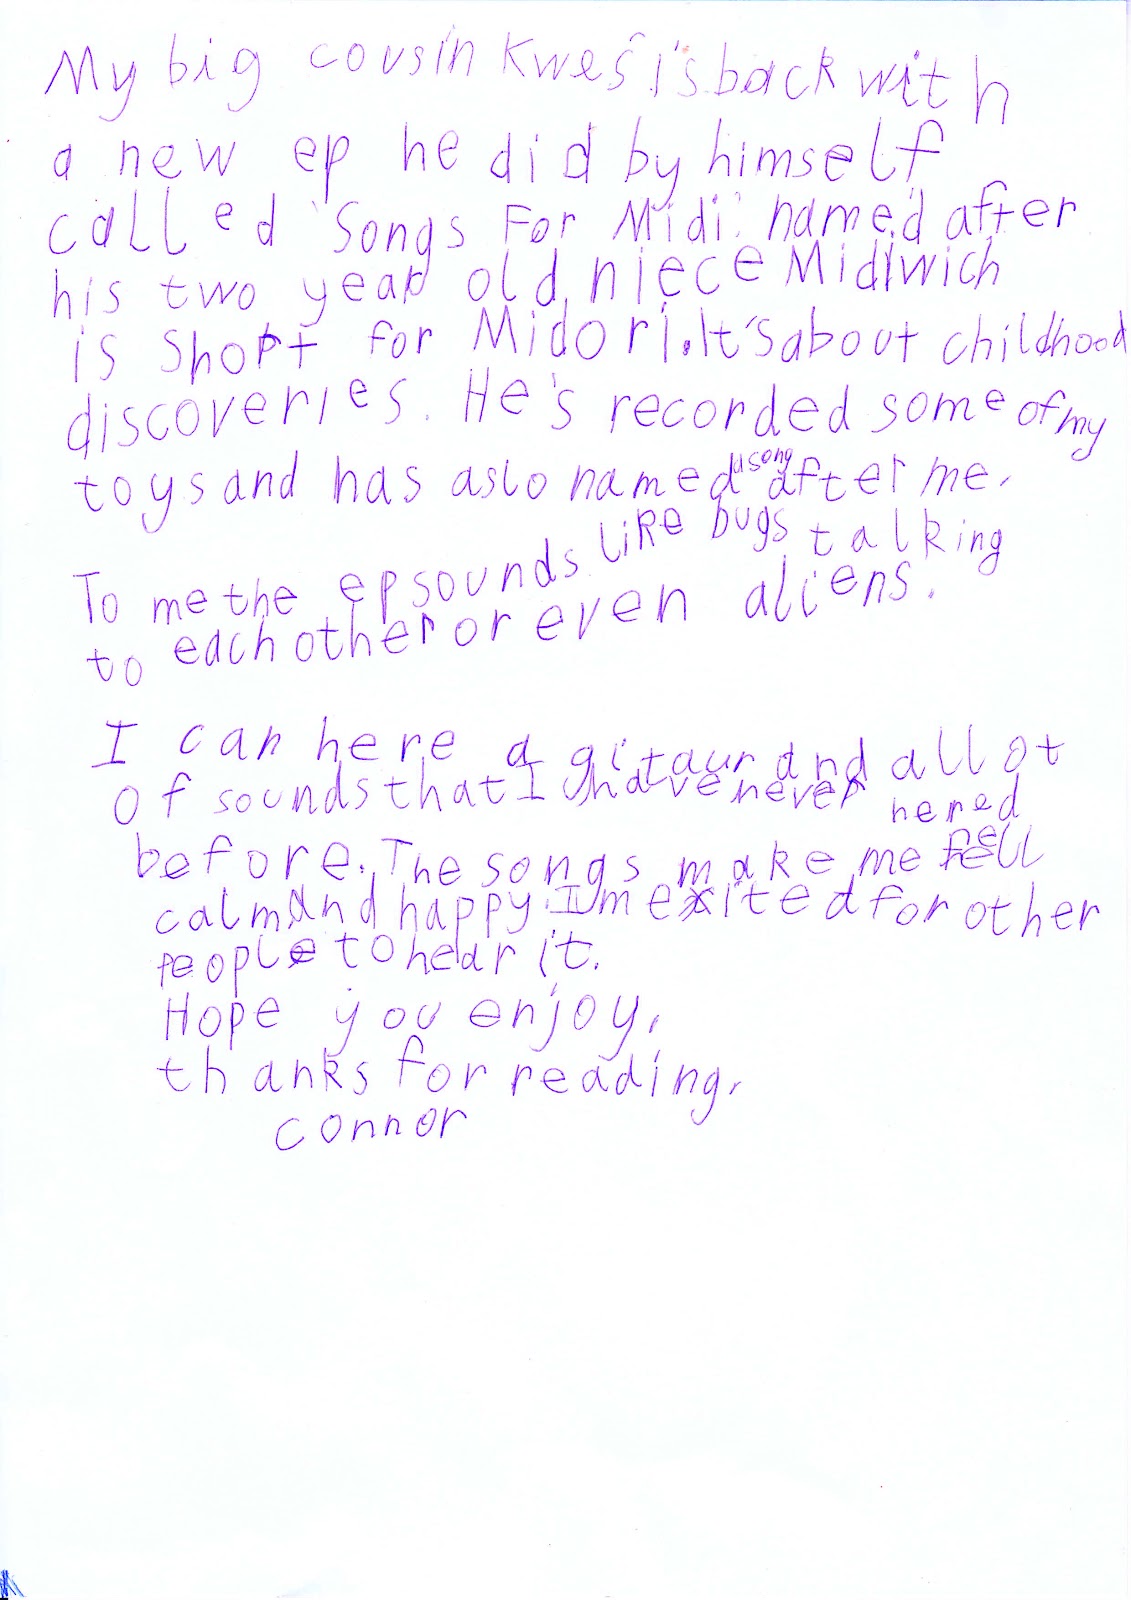 My big cousin Kwes is back with
a new ep he did by himself
called 'Songs For Midi' named after
his two year old niece Midi wich
is short for Midori. It's about childhood
discoveries. He's recorded some of my
toys and has aslo named a song after me.
To me the ep sounds like bugs talking
to each other or even aliens.
I can here a gitaur and all ot
of sounds that I have never hered
before. The songs make me feel
calm and happy. I'm exited for other
people to hear it.
Hope you enjoy,
thanks for reading,
Connor